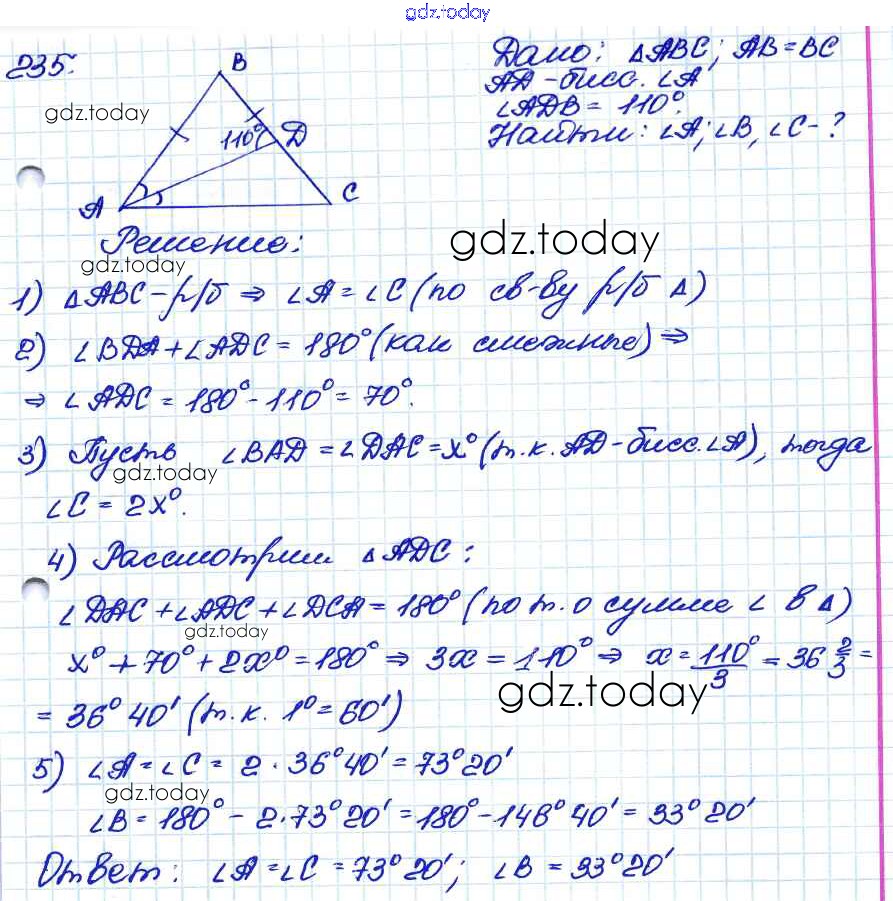 gdz.today
235.
Дано: △ABC; AB=BC
AA - бисс. ∠A
∠ADB = 110°.
Найти: ∠A; ∠B, ∠C - ?
B
gdz.today
110°
D
A
C
Решение:
gdz.today
gdz.today
1) △ABC - р/б ⇒ ∠A = ∠C (по св-ву р/б △)
2) ∠BDA + ∠ADC = 180° (как смежные) ⇒
⇒ ∠ADC = 180° - 110° = 70°.
3) Пусть ∠BAD = ∠DAC = x° (т.к. AD - бисс. ∠A), тогда
gdz.today
∠C = 2x°.
4) Рассмотрим △ADC:
∠DAC + ∠ADC + ∠DCA = 180° (по т. о сумме ∠ в △)
gdz.today
x° + 70° + 2x° = 180° ⇒ 3x = 110° ⇒ x = 110°/3 = 36 2/3 =
gdz.today
= 36° 40' (т.к. 1° = 60')
5) ∠A = ∠C = 2 · 36° 40' = 73° 20'
gdz.today
∠B = 180° - 2 · 73° 20' = 180° - 146° 40' = 33° 20'
Ответ: ∠A = ∠C = 73° 20'; ∠B = 33° 20'